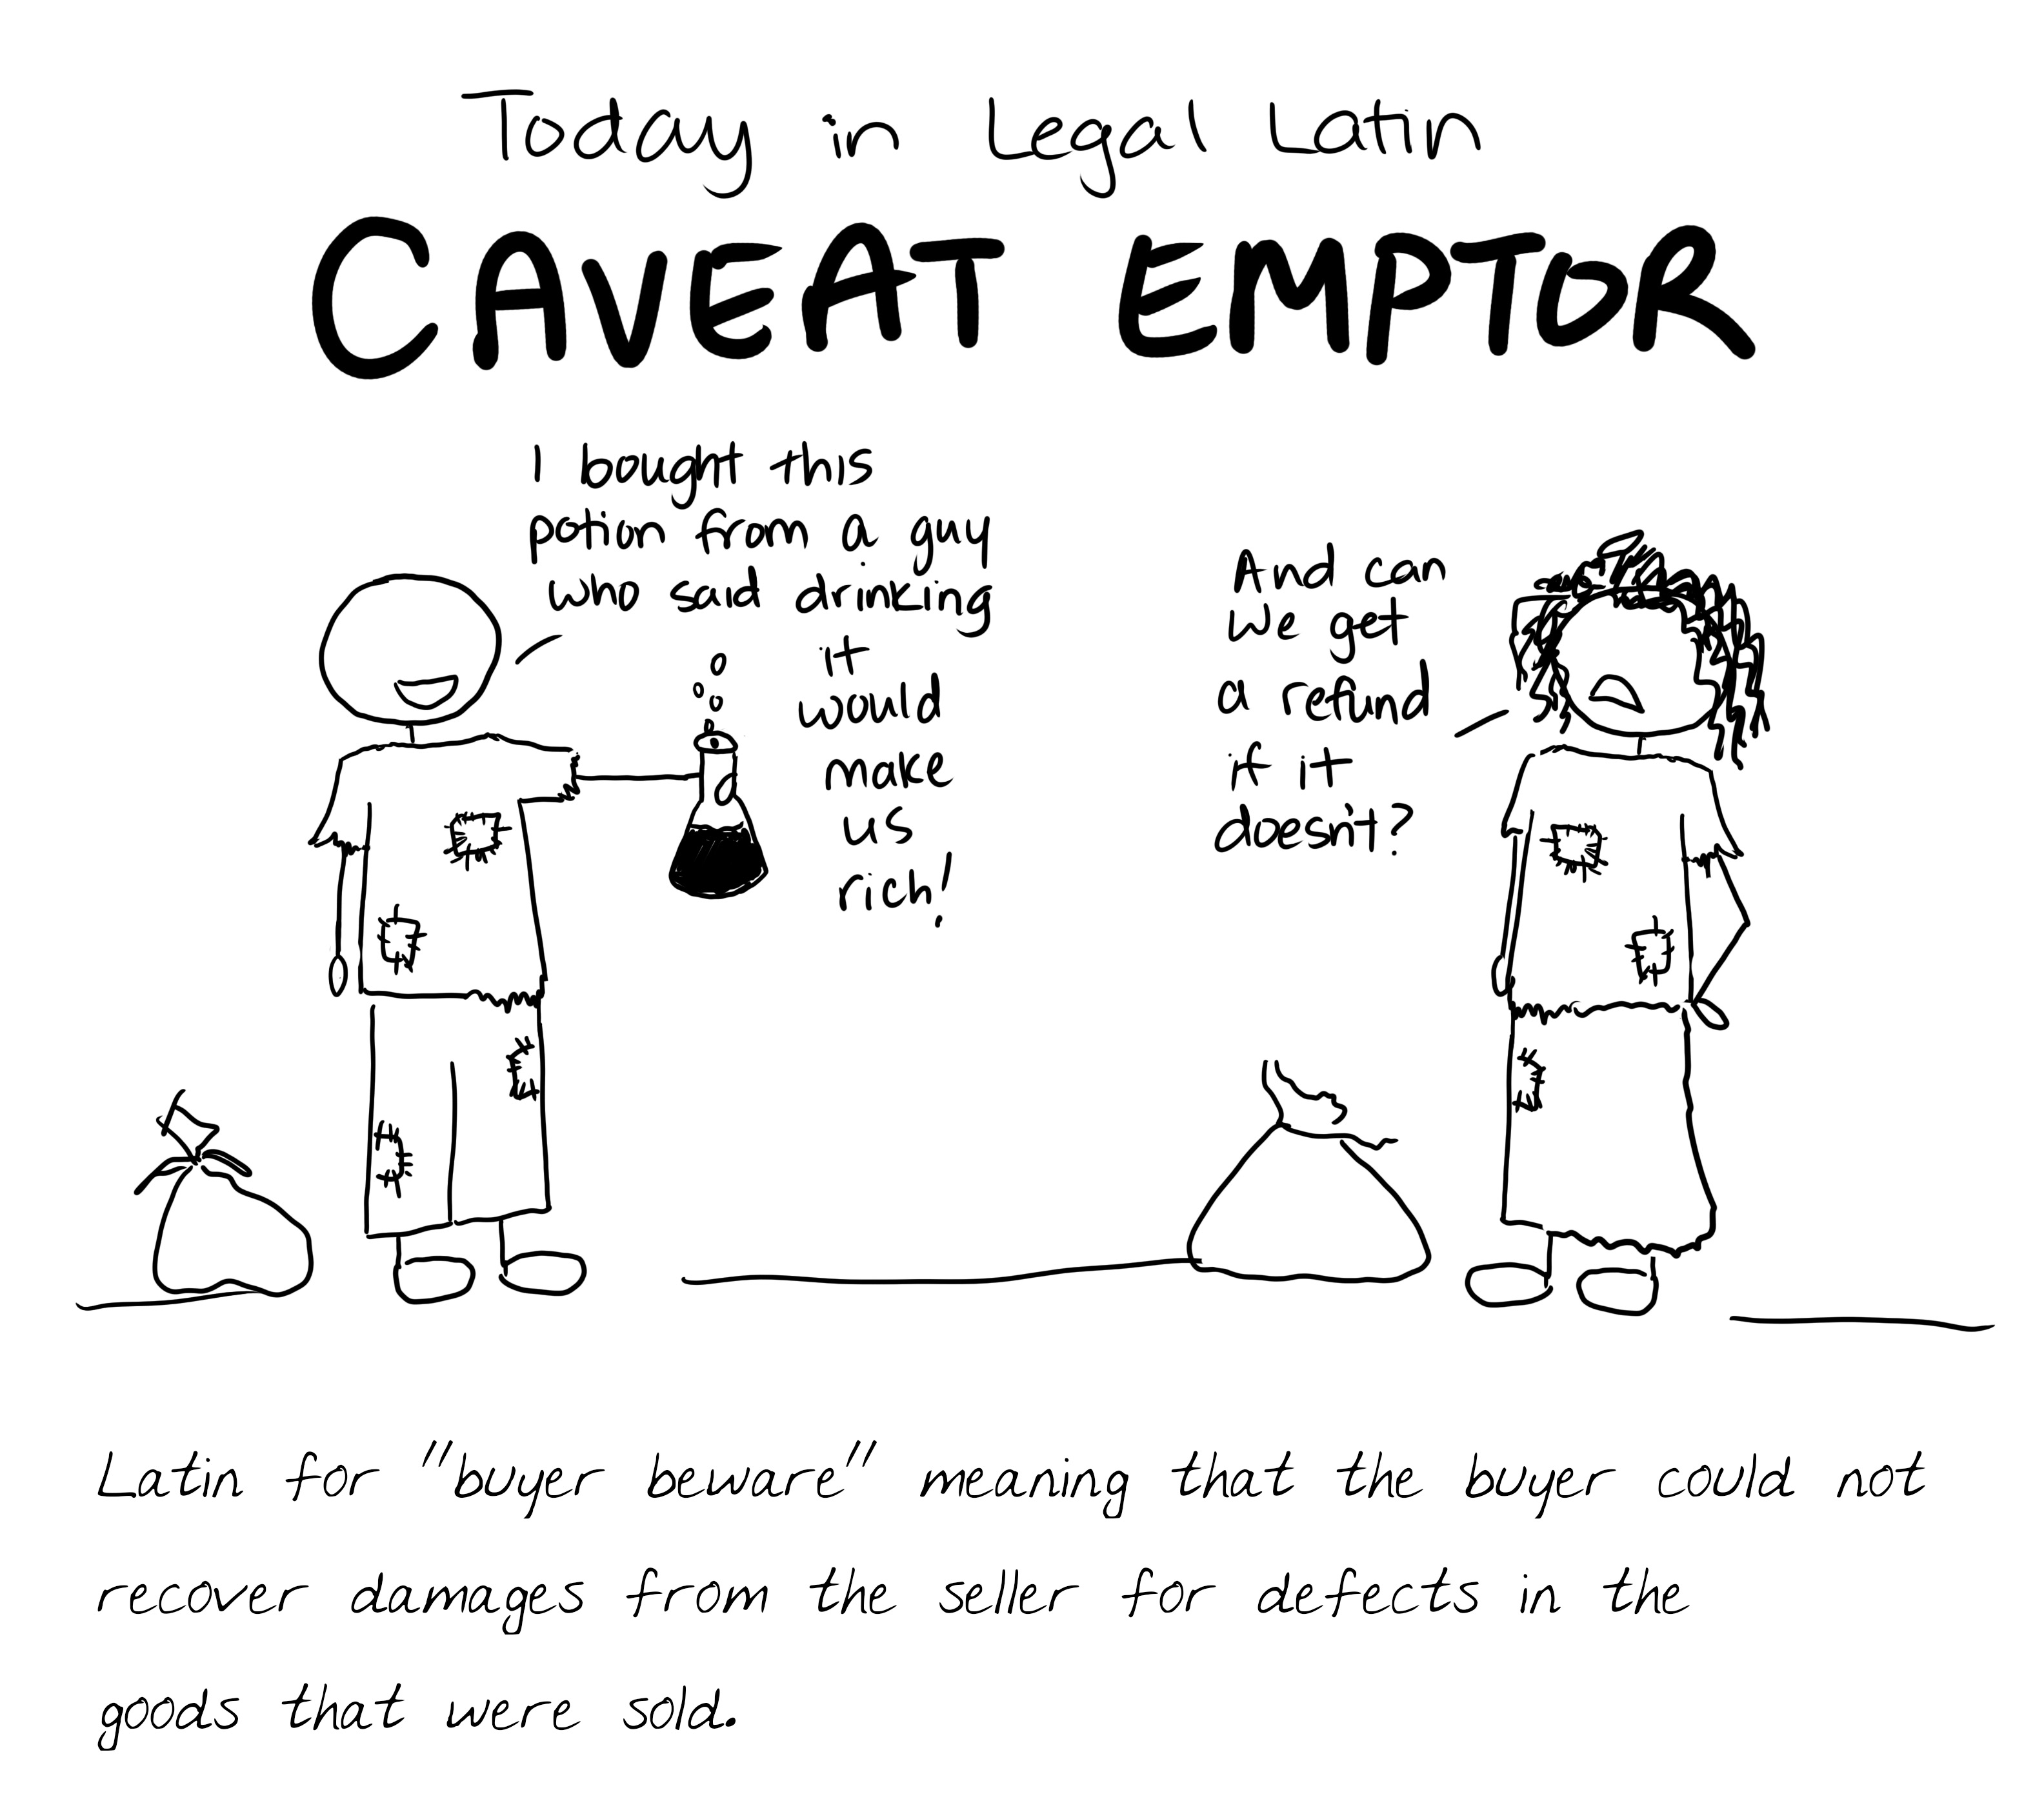 Today in Legal Latin
CAVEAT EMPTOR
I bought this
potion from a guy
who said drinking
it
would
make
us
rich!
And can
we get
a refund
if it
doesn't?
Latin for "buyer beware" meaning that the buyer could not
recover damages from the seller for defects in the
goods that were sold.